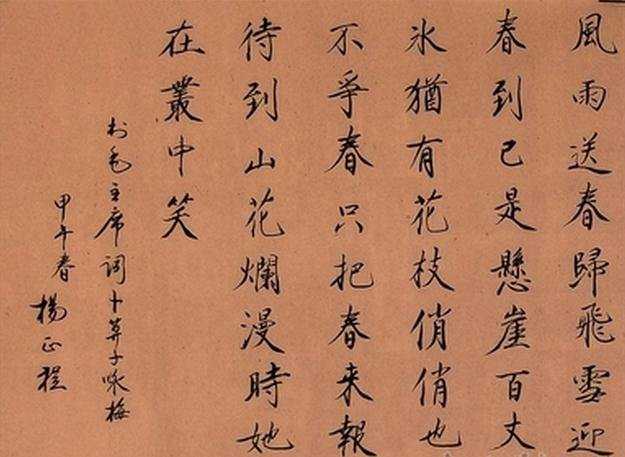 風雨送春歸飛雪迎
春到已是懸崖百丈
氷猶有花枝俏俏也
不爭春只把春來報
待到山花爛漫時她
在叢中笑
书毛主席词卜算子咏梅
甲午春 楊正程